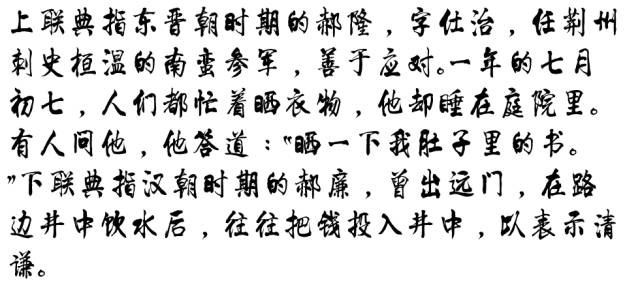 上联典指东晋朝时期的郝隆，字仕治，任荆州
刺史桓温的南蛮参军，善于应对。一年的七月
初七，人们都忙着晒衣物，他却睡在庭院里。
有人问他，他答道：“晒一下我肚子里的书。
”下联典指汉朝时期的郝廉，曾出远门，在路
边井中饮水后，往往把钱投入井中，以表示清
谦。